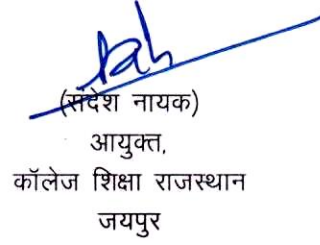 (संदेश नायक)
आयुक्त,
कॉलेज शिक्षा राजस्थान
जयपुर